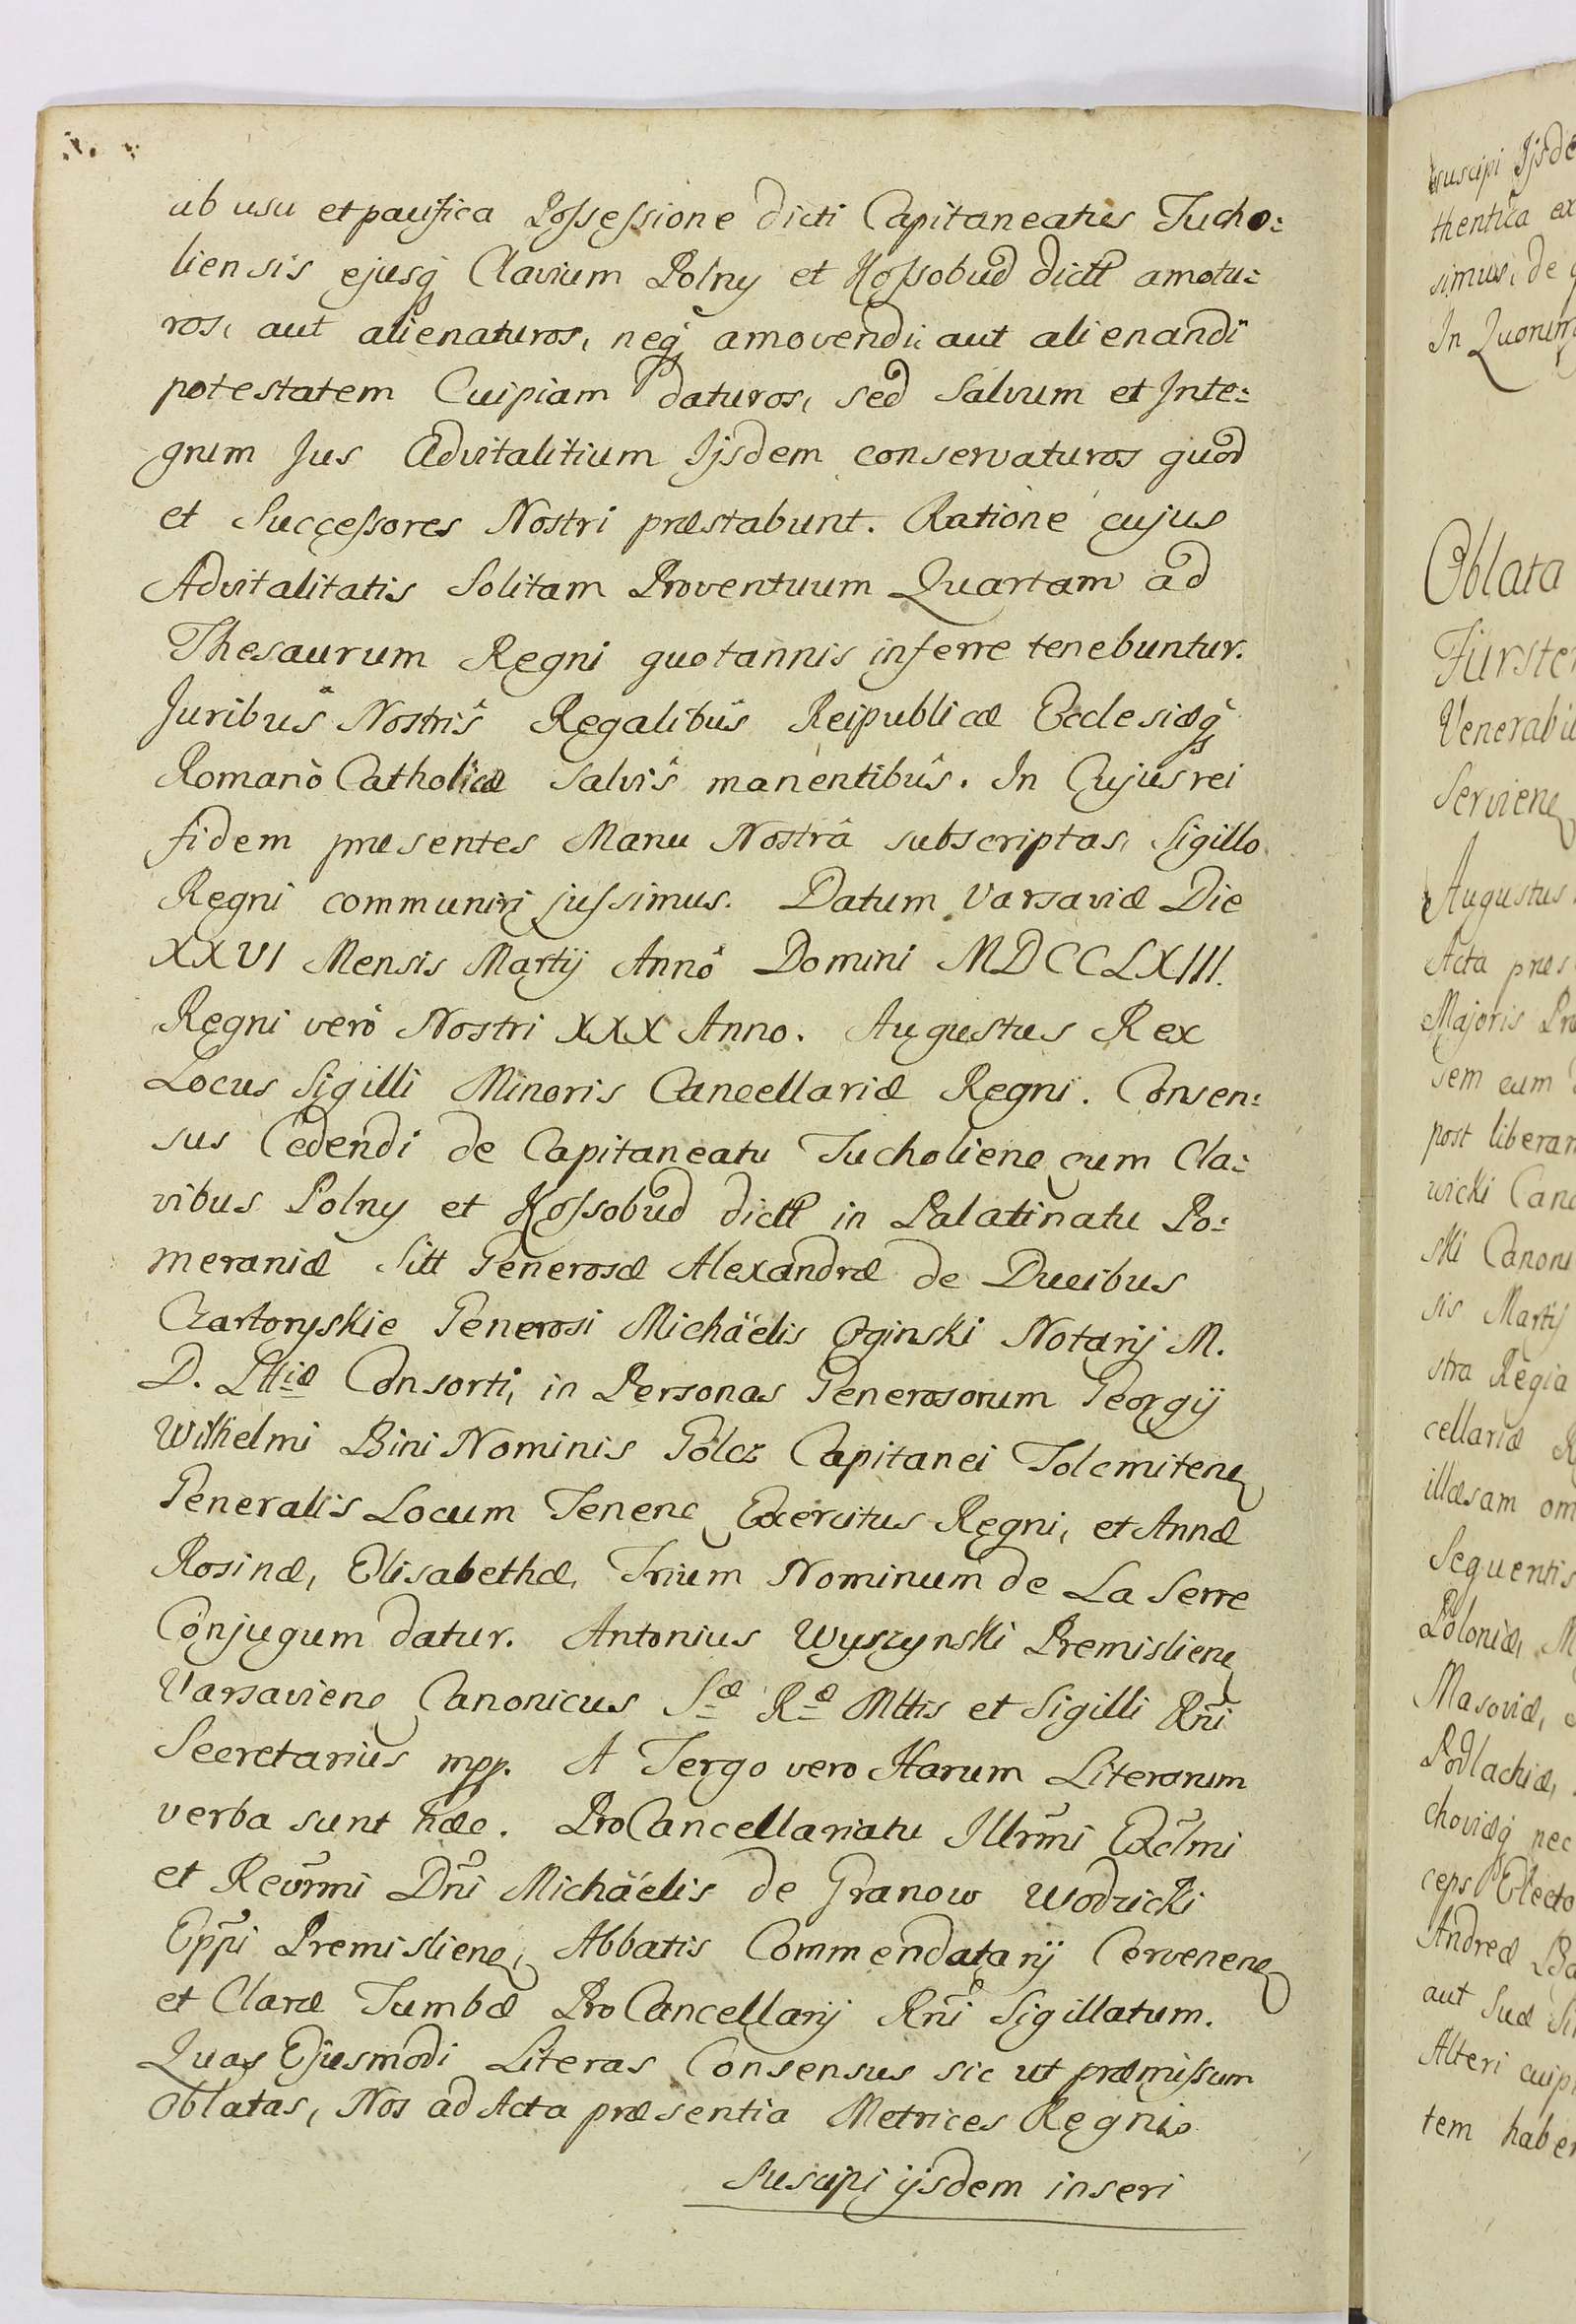 ab usu et paufica Possessione dicti Capitaneatus Tucho:
liensis ejusq Clavium Polny et Kossobud dictt amotu:
ros, aut alienaturos, neq amovendi aut alienandi
potestatem Cuipiam daturos, sed Salvum et Inte:
grum Jus Advitalitium Ijsdem conservaturos quod
et Successores Nostri præstabunt. Ratione cujus
Advitalitatis Solitam Proventuum Quartam ad
Thesaurum Regni quotannis inferre tenebuntur.
Juribus Nostris Regalibus Reipublicæ Ecclesiæq
Romano Catholicæ Salvis manentibus. In Cujus rei
fidem præsentes Manu Nostrâ subscriptas, Sigillo
Regni communiri jussimus. Datum Varsaviæ Die
XXVI Mensis Martij Anno Domini MDCCLXIII.
Regni vero Nostri XXX Anno. Augustus Rex
Locus Sigilli Minoris Cancellariæ Regni. Consen:
sus Cedendi de Capitaneatu Tucholiene cum Cla:
vibus Polny et Kossobud dictt in Palatinatu Po:
meraniæ Sitt Generosæ Alexandræ de Ducibus
Czartoryskie Generosi Michäelis Oginski Notarij M.
D. Lttiæ Consorti, in Personas Generosorum Georgij
Wilhelmi Bini Nominis Golcz Capitanei Tolcmitene
Generalis Locum Tenene Exercitus Regni, et Annæ
Rosinæ, Elisabethæ, Trium Nominum de La Serre
Conjugum datur. Antonius Wyszynski Premisliene
Varsaviene Canonicus Sæ Ræ Mttis et Sigilli Rni
Secretarius mpp. A Tergo vero Harum Literarum
verba sunt hæc. ProCancellariatu Illrmi Exclmi
et Revrmi Dni Michäelis de Granow Wodzicki
Eppi Premisliene, Abbatis Commendatarij Cervenene
et Claræ Tumbæ ProCancellarij Rni Sigillatum.
Quas Ejusmodi Literas Consensus sic ut præmissum
oblatas, Nos ad Acta præsentia Metrices Regni
suscipi ijsdem inseri
suscipi Ijsde
thentica ex
simus, de
In Quorum
Oblata
Fürste
Venerabil
Serviene
Augustus
Acta præs
Majoris Pro
tem cum
post liberam
wicki Canc
ski Canoni
sis Martij
stra Regia
cellariæ R
illæsam om
Sequentis
Poloniæ, M
Masoviæ,
Podlachiæ,
choviæq nec
ceps Electo
Andreæ
aut Suæ
Alteri cuipi
tem haber